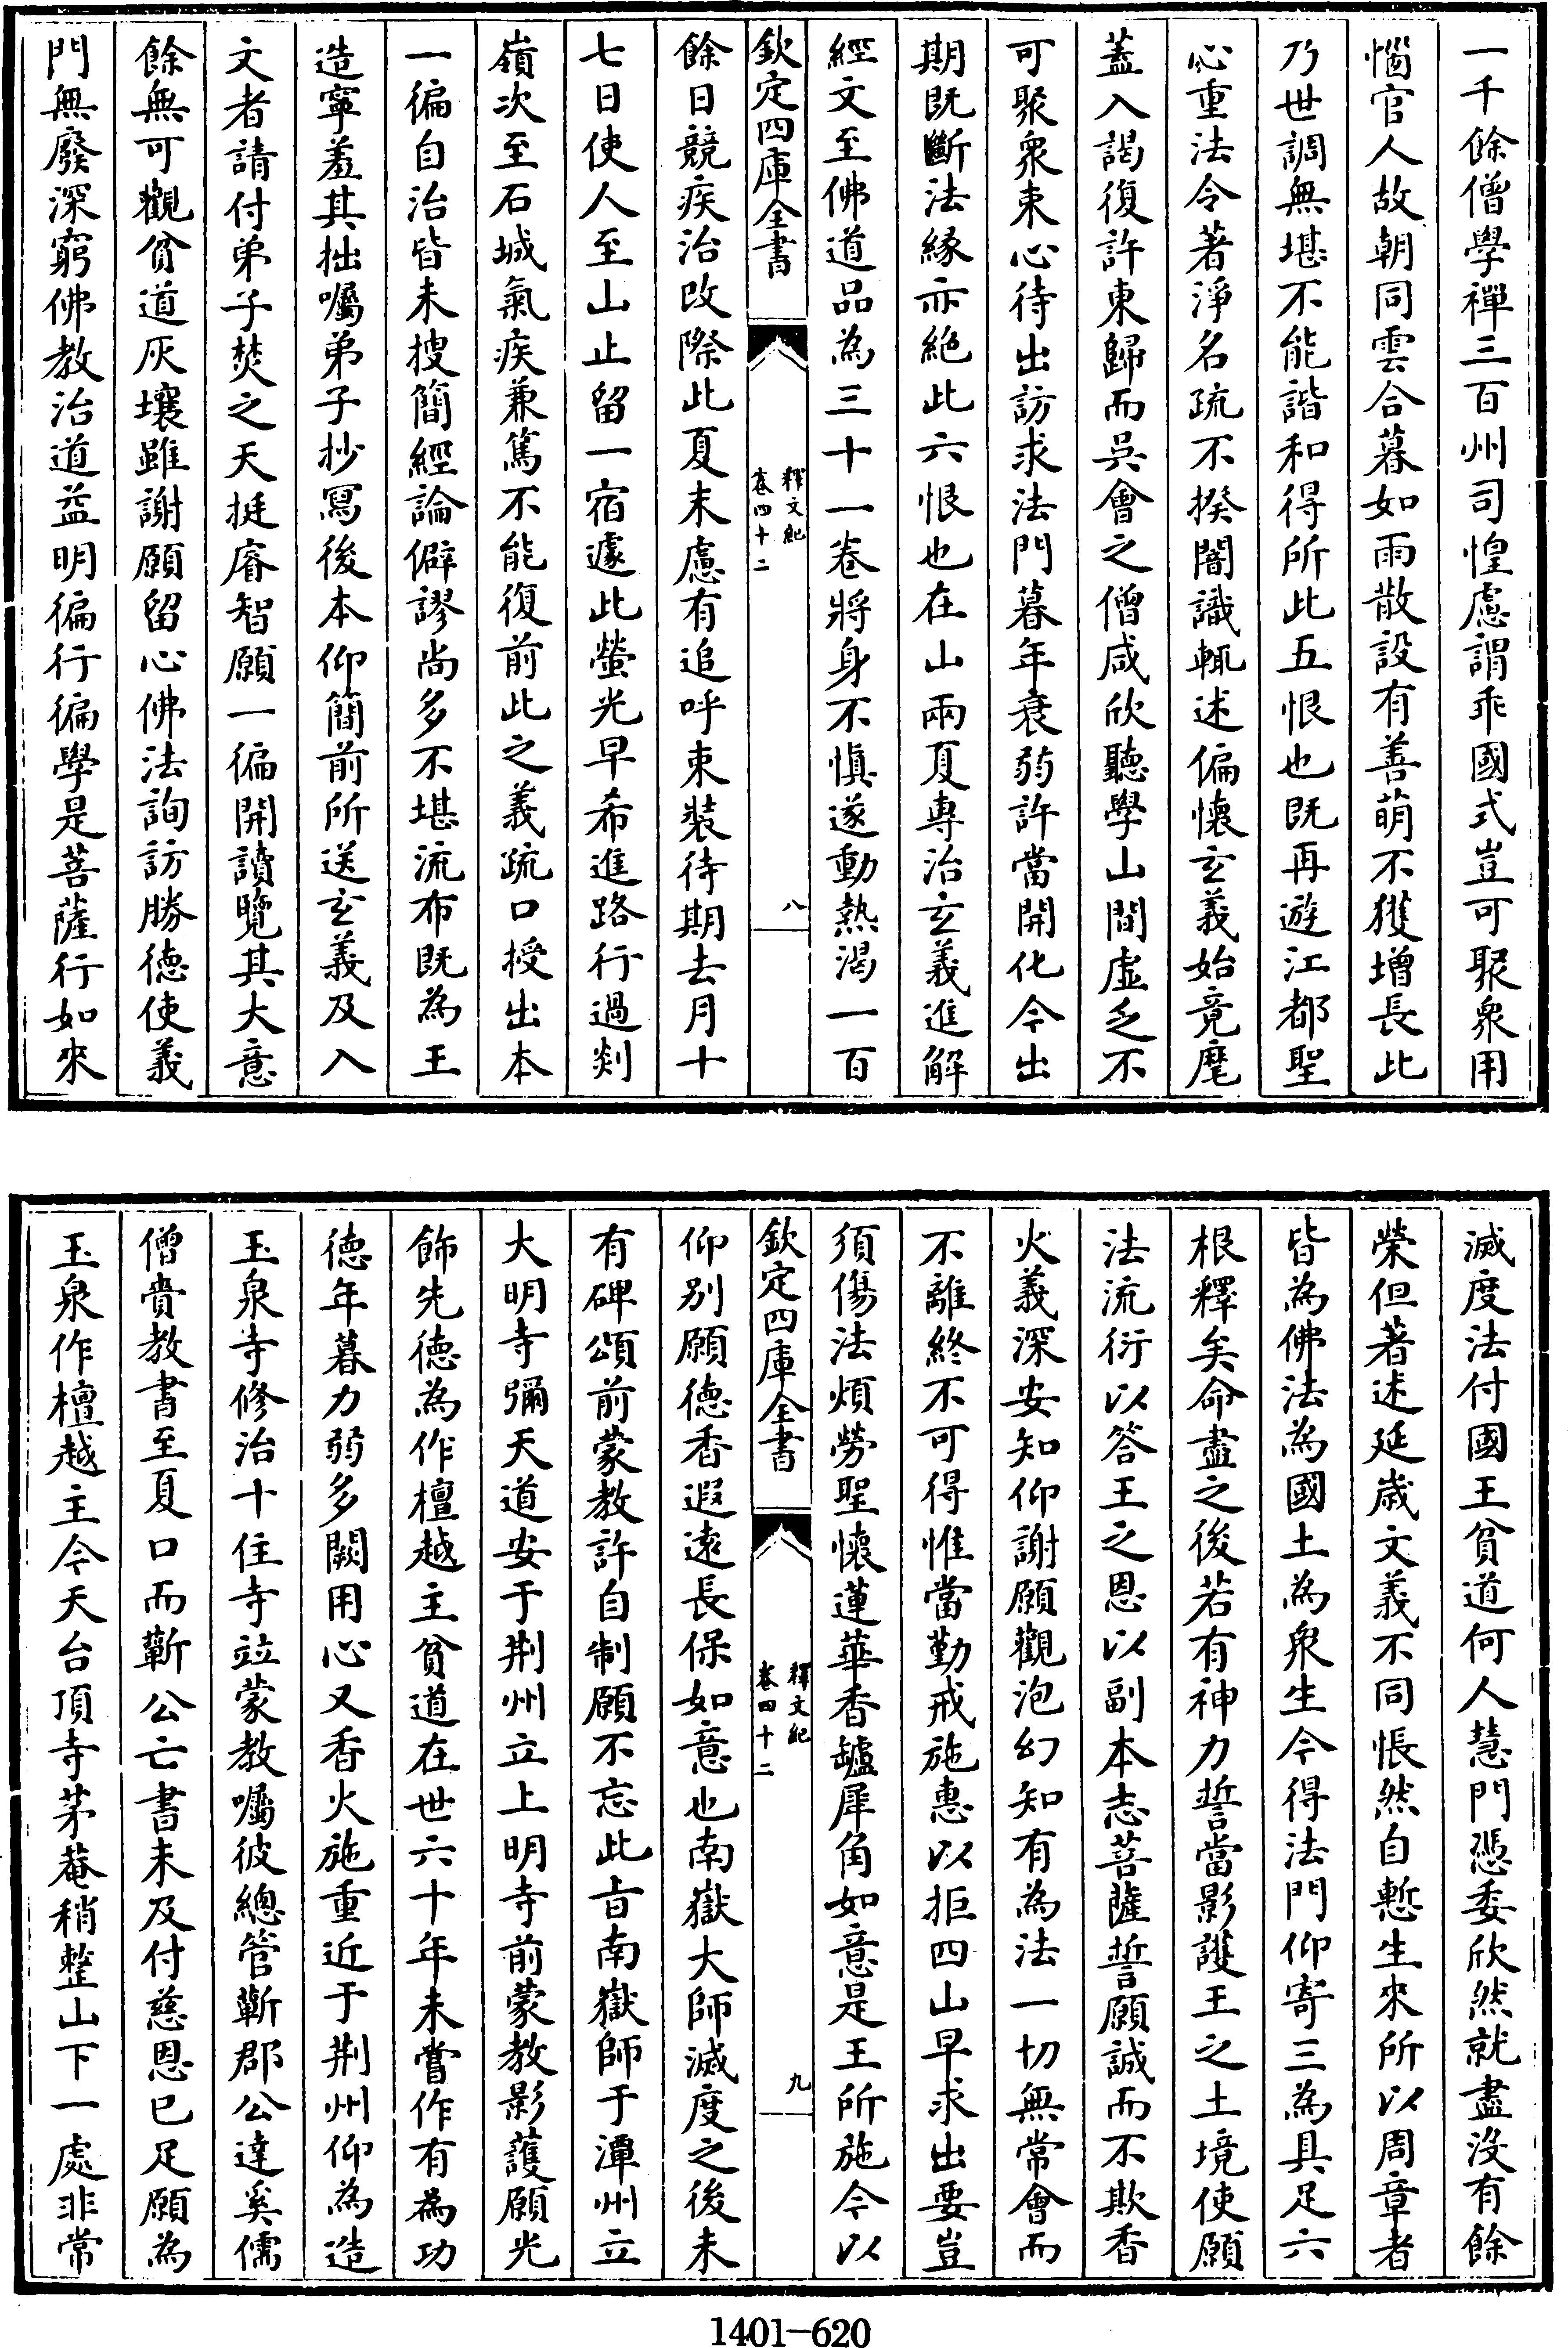 一千餘僧學禪三百州司惶慮謂乖國式豈可聚衆用
惱官人故朝同雲合暮如雨散設有善萌不獲增長此
乃世調無堪不能諧和得所此五恨也既再遊江都聖
心重法令著淨名疏不揆闇識輒述偏懷玄義始竟麾
蓋入謁復許東歸而吳會之僧咸欣聽學山間虛乏不
可聚衆束心待出訪求法門暮年衰弱許當開化今出
期既斷法緣亦絕此六恨也在山兩夏專治玄義進解
經文至佛道品為三十一卷將身不慎遂動熱渴一百
欽定四庫全書
釋文紀
卷四十二
八
餘日競疾治改際此夏末慮有追呼束裝待期去月十
七日使人至山止留一宿遽此螢光早希進路行過剡
嶺次至石城氣疾兼篤不能復前此之義疏口授出本
一徧自治皆未搜簡經論僻謬尚多不堪流布既為王
造寧羞其拙囑弟子抄寫後本仰簡前所送玄義及入
文者請付弟子焚之天挺睿智願一徧開讀覽其大意
餘無可觀貧道灰壤雖謝願留心佛法詢訪勝德使義
門無廢深窮佛教治道益明徧行徧學是菩薩行如來
滅度法付國王貧道何人慧門憑委欣然就盡沒有餘
榮但著述延歲文義不同悵然自慙生來所以周章者
皆為佛法為國土為衆生今得法門仰寄三為具足六
根釋矣命盡之後若有神力誓當影護王之土境使願
法流衍以答王之恩以副本志菩薩誓願誠而不欺香
火義深安知仰謝願觀泡幻知有為法一切無常會而
不離終不可得惟當勤戒施惠以拒四山早求出要豈
須傷法煩勞聖懷蓮華香罏犀角如意是王所施今以
欽定四庫全書
釋文紀
卷四十二
九
仰別願德香遐遠長保如意也南嶽大師滅度之後未
有碑頌前蒙教許自制願不忘此旨南嶽師于潭州立
大明寺彌天道安于荆州立上明寺前蒙教影護願光
飾先德為作檀越主貧道在世六十年未嘗作有為功
德年暮力弱多闕用心又香火施重近于荆州仰為造
玉泉寺修治十住寺竝蒙教囑彼總管蘄郡公達奚儒
僧賫教書至夏口而蘄公亡書未及付慈恩已足願為
玉泉作檀越主今天台頂寺茅菴稍整山下一處非常
1401-620